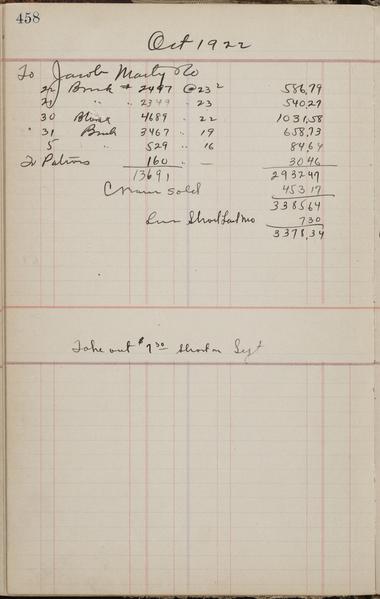 458
Oct 1922
To Jacob Marty Co
22 Brick # 2497 @ 23 ½ 586,79
21 " " 2349 " 23 540,27
30 Block 4689 " 22 1031,58
31 Brick 3467 " 19 658,73
5 " 529 " 16 84,64
To Patrons 160 " — 30 46
13691 2932 47
Cream sold 453 17
3385 64
Less Short Last Mo 7 30
3378,34
Take out $7 30 Short on Sept